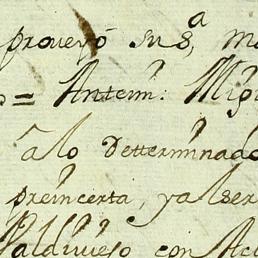 proveyó su sᵃ, m
= Antemi: Mig
a lo Determinado
preincerta, y al ser
Valdivieso con Ac